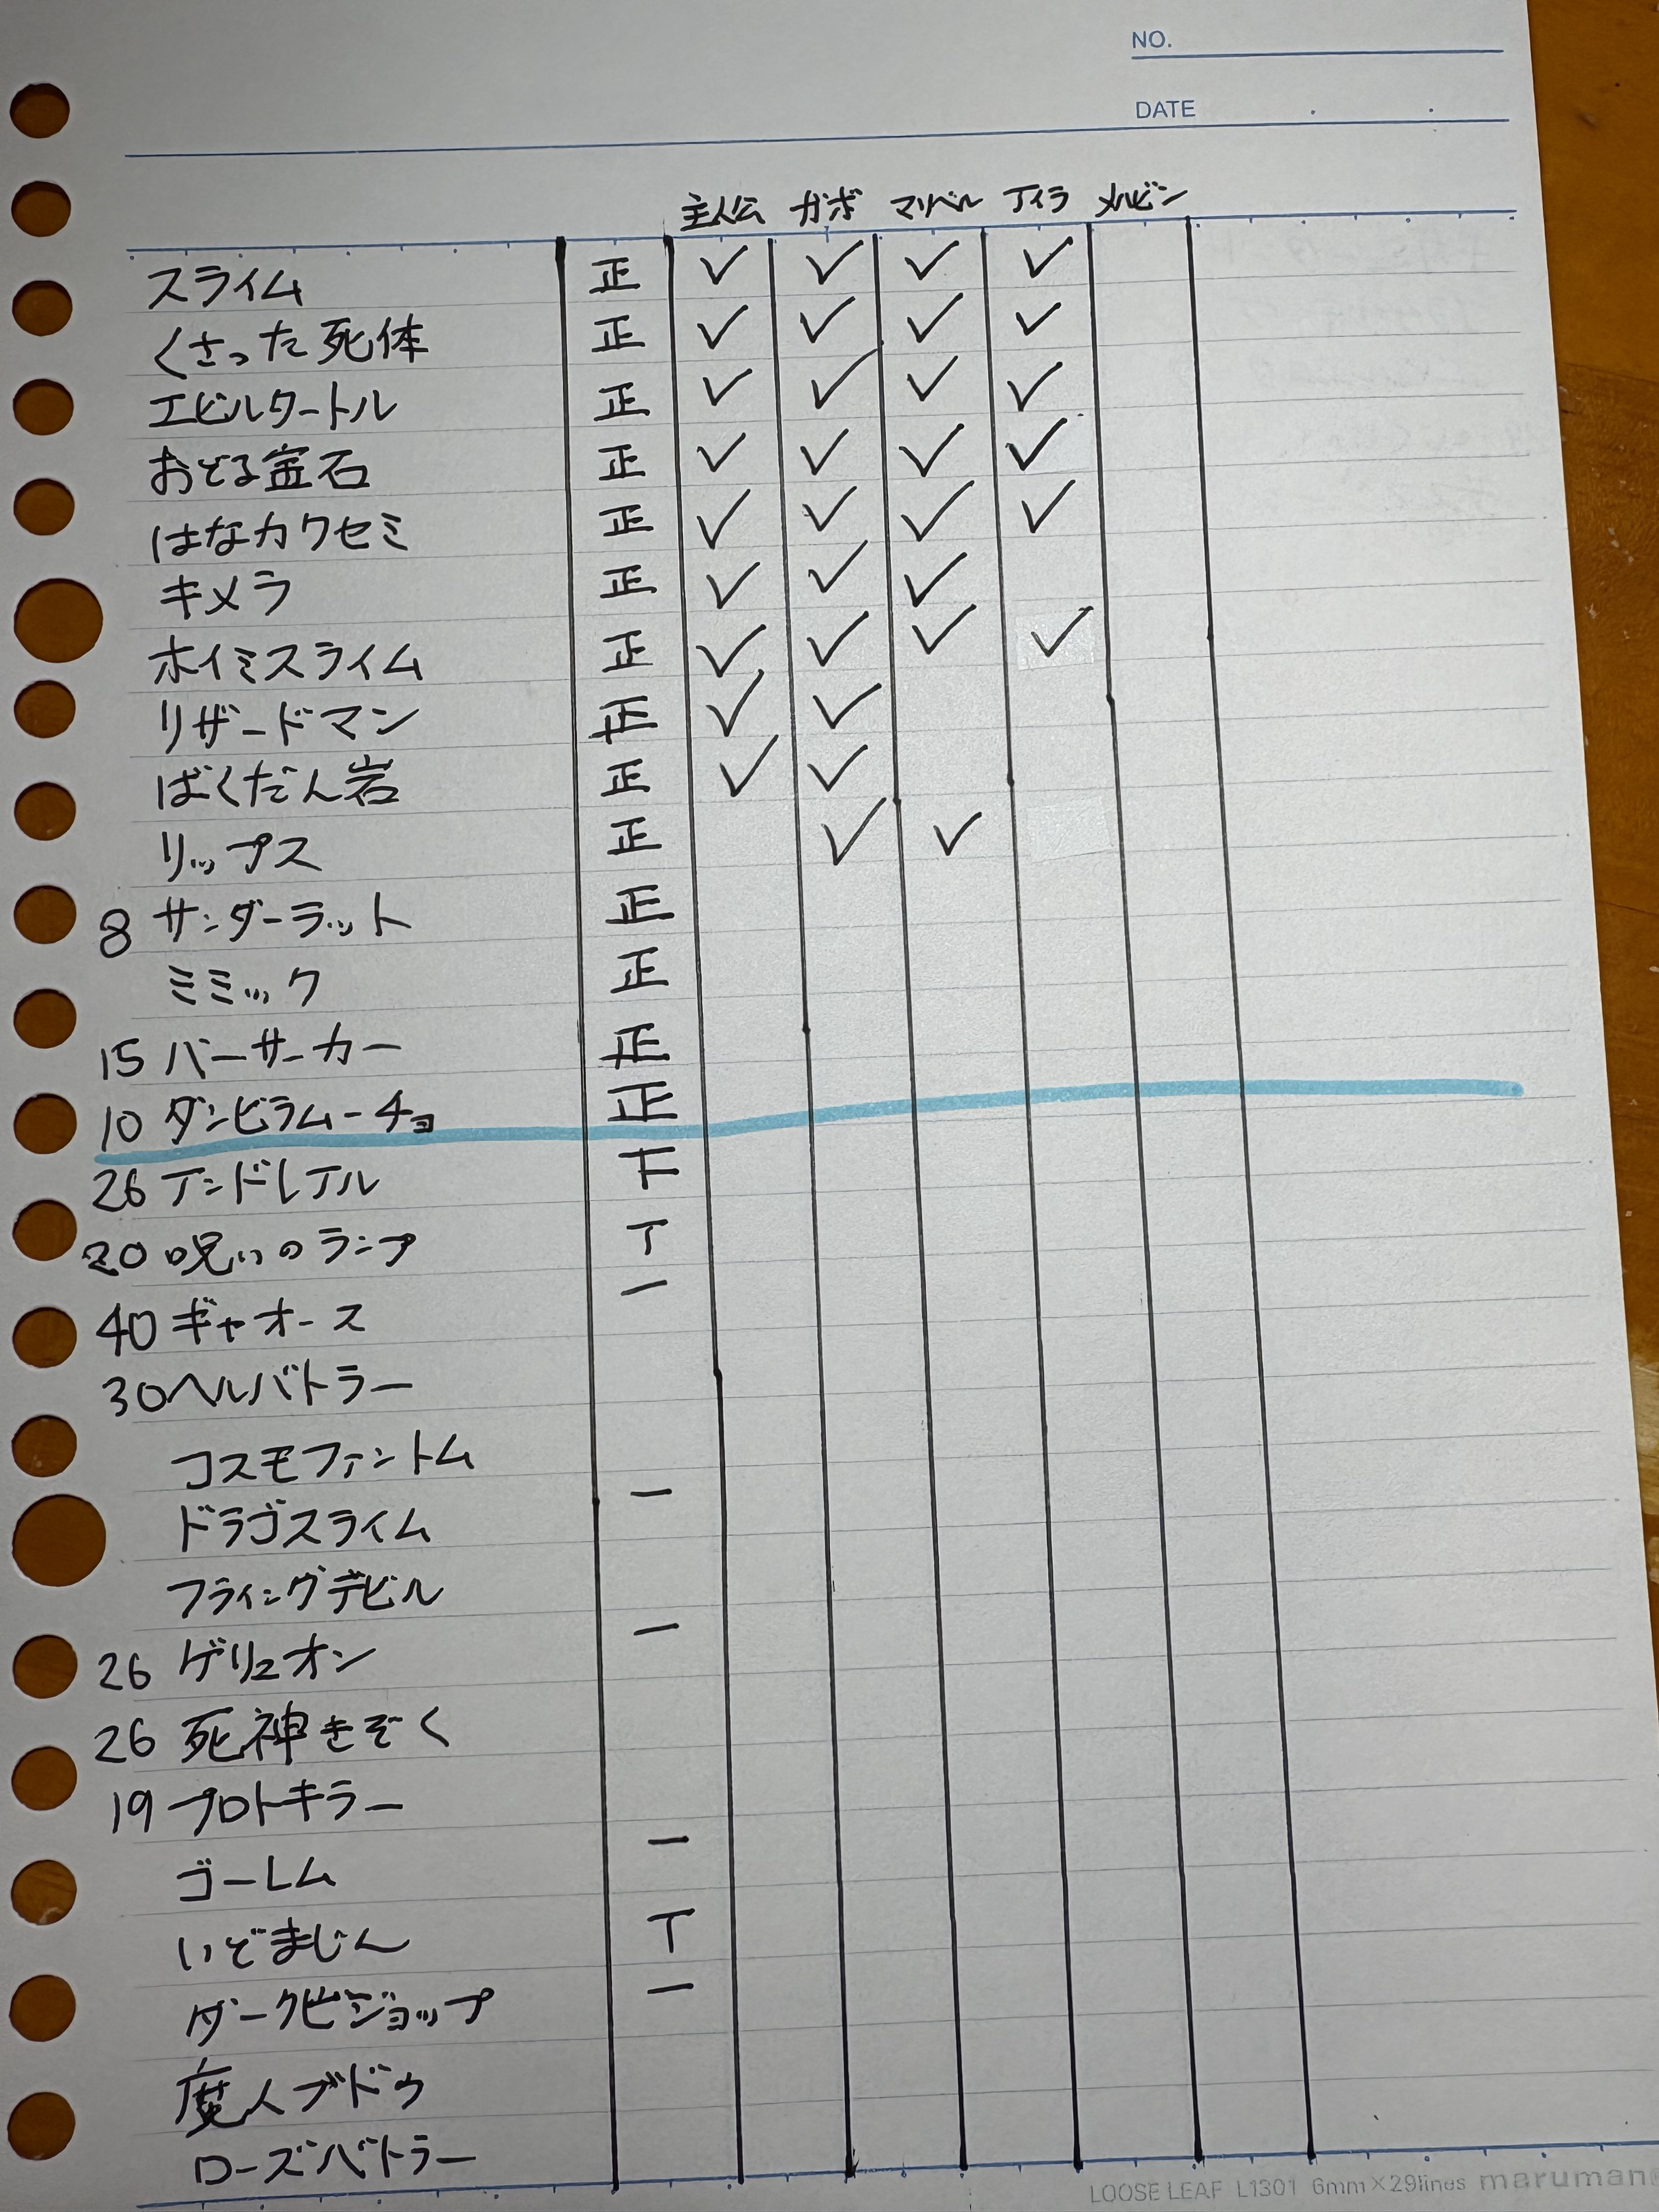 NO.
DATE
主人公 ガボ マリベル アイラ メルビン
スライム 正 ✓ ✓ ✓ ✓
くさった死体 正 ✓ ✓ ✓ ✓
エビルタートル 正 ✓ ✓ ✓ ✓
おどる宝石 正 ✓ ✓ ✓ ✓
はなカワセミ 正 ✓ ✓ ✓ ✓
キメラ 正 ✓ ✓ ✓
ホイミスライム 正 ✓ ✓ ✓ ✓
リザードマン 正 ✓ ✓
ばくだん岩 正 ✓ ✓
リップス 正 ✓ ✓
8 サンダーラット 正
ミミック 正
15 バーサーカー 正
10 ダンビラムーチョ 正
26 アンドレアル
20 呪いのランプ 丅
40 ギャオース 一
30 ヘルバトラー
コスモファントム
ドラゴスライム 一
フライングデビル
26 ゲリュオン 一
26 死神きぞく
19 プロトキラー
ゴーレム 一
いどまじん 丅
ダークビショップ 一
魔人ブドゥ
ローズバトラー
LOOSE LEAF L1301 6mm×29lines maruman